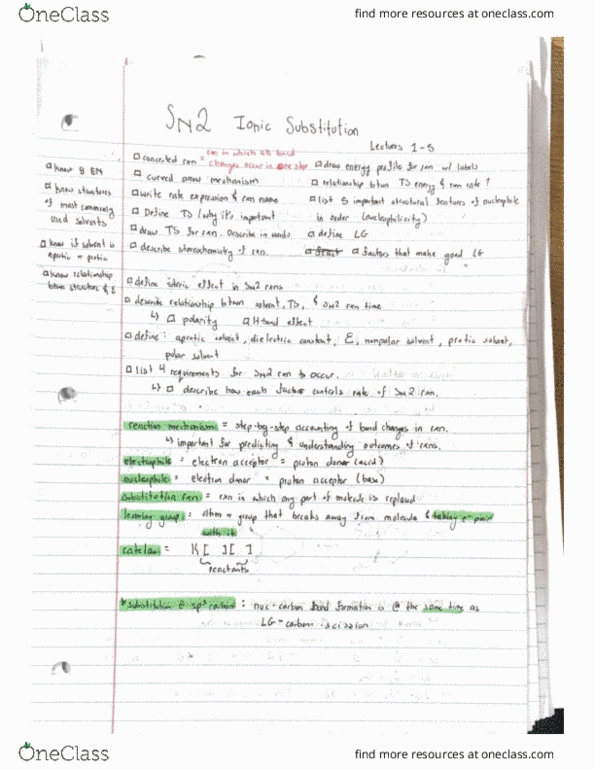 OneClass
find more resources at oneclass.com
SN2 Ionic Substitution
Lectures 1-5
rxn in which all bond
□ concerted rxn = changes occur in one step □ draw energy profile for rxn w/ labels
□ know 8 EN
□ curved arrow mechanism □ relationship btwn TS energy & rxn rate?
□ know structures
of most commonly
used solvents
□ write rate expression & rxn name □ list 5 important structural features of nucleophile
in order (nucleophilicity)
□ Define TS / why it's important
□ define LG
□ draw TS for rxn. Describe in words
□ know if solvent is
aprotic or protic
□ describe stereochemistry of rxn. □ factors that make good LG
□ know relationship
btwn structure & ε
□ define steric effect in SN2 rxns
□ describe relationship btwn solvent, TS, & SN2 rxn time
↳ □ polarity □ H-bond effect
□ define: aprotic solvent, dielectric constant, ε, nonpolar solvent, protic solvent,
polar solvent
□ list 4 requirements for SN2 rxn to occur.
↳ □ describe how each factor controls rate of SN2 rxn.
reaction mechanism = step-by-step accounting of bond changes in rxn.
↳ important for predicting & understanding outcomes of rxns.
electrophile = electron acceptor = proton donor (acid)
nucleophile = electron donor = proton acceptor (base)
substitution rxn = rxn in which any part of molecule is replaced
leaving group = atom or group that breaks away from molecule & taking e- pair
with it
rate law = K[ ][ ]
reactants
*substitution @ sp³ carbon: nuc-carbon bond formation is @ the same time as
LG-carbon scission
OneClass
find more resources at oneclass.com